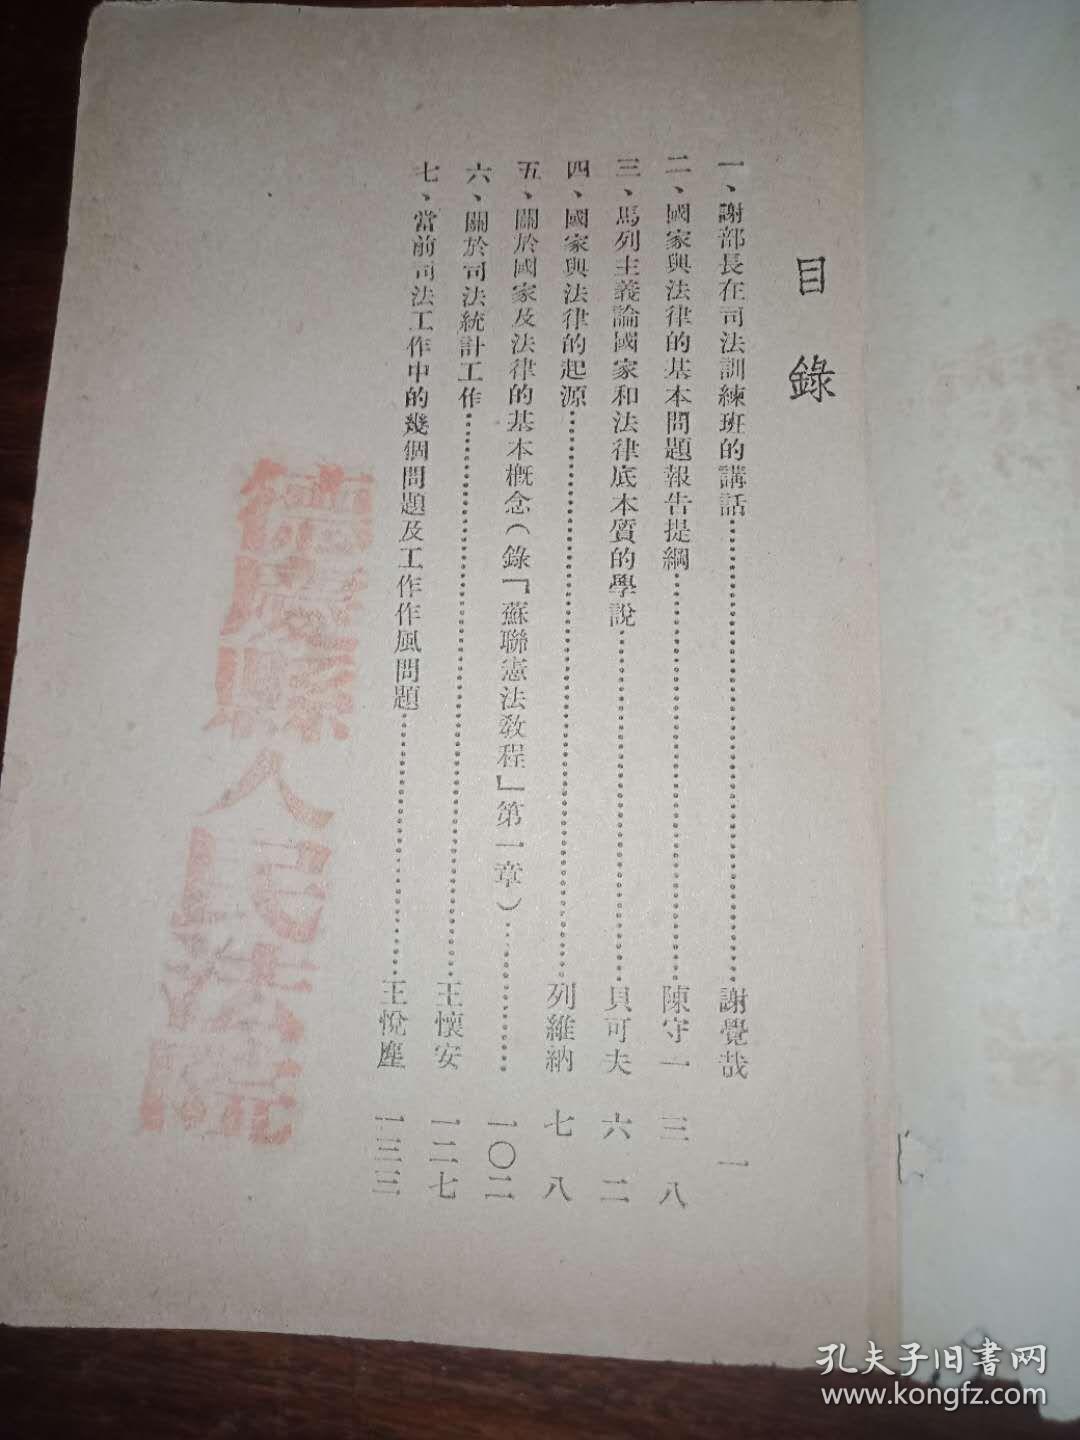 目錄
一、謝部長在司法訓練班的講話……謝覺哉 一
二、國家與法律的基本問題報告提綱……陳守一 三八
三、馬列主義論國家和法律底本質的學說……貝可夫 六二
四、國家與法律的起源……列維納 七八
五、關於國家及法律的基本概念（錄『蘇聯憲法教程』第一章）……一〇二
六、關於司法統計工作……王懷安 一二七
七、當前司法工作中的幾個問題及工作作風問題……王悅塵 一三三
德慶縣人民法院
孔夫子旧書网
www.kongfz.com